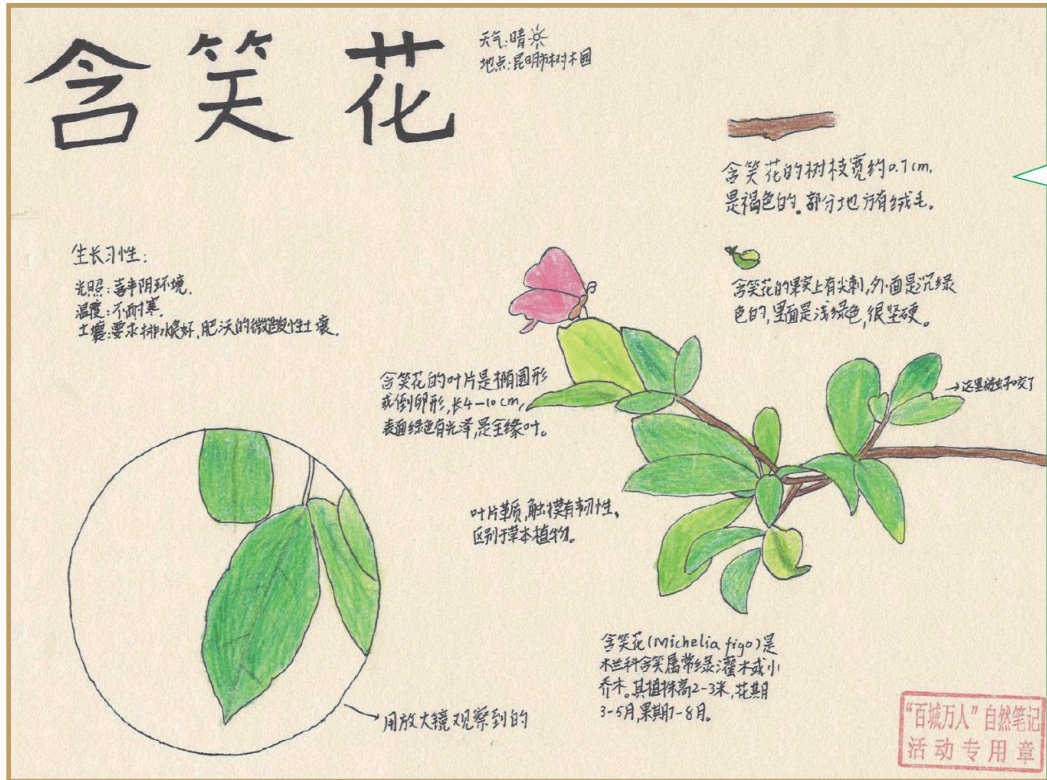 含笑花
天气:晴
地点:昆明市树木园
含笑花的树枝宽约0.7cm,
是褐色的。部分地方有绒毛。
生长习性:
光照:喜半阴环境.
温度:不耐寒.
土壤:要求排水良好,肥沃的微酸性土壤.
含笑花的果实上有尖刺,外面是沉绿
色的,里面是浅绿色,很坚硬。
含笑花的叶片是椭圆形
或倒卵形,长4-10cm,
表面绿色有光泽,是全缘叶。
→这里被虫子咬了
叶片革质,触摸有韧性、
区别于草本植物。
含笑花(Michelia figo)是
木兰科含笑属常绿灌木或小
乔木。其植株高2-3米,花期
3-5月,果期7-8月。
用放大镜观察到的
"百城万人"自然笔记
活动专用章